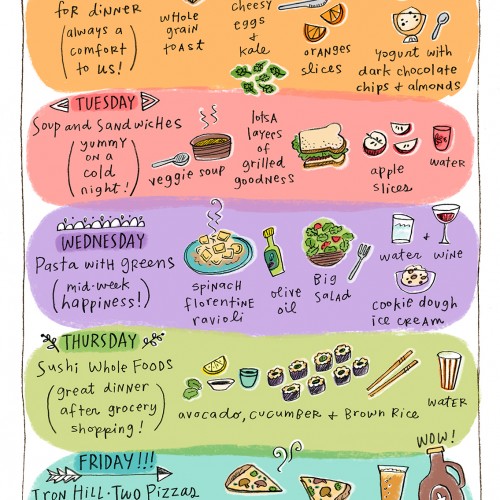 for dinner
(always a
comfort
to us!)
whole
grain
toast
cheesy
eggs
+
kale
oranges
slices
yogurt with
dark chocolate
chips + almonds
TUESDAY
Soup and Sandwiches
(yummy
on a
cold
night!)
veggie soup
lotsa
layers
of
grilled
goodness
apple
slices
water
WEDNESDAY
Pasta with Greens
(mid-week
happiness!)
spinach
florentine
ravioli
olive
oil
Big
Salad
water + wine
cookie dough
ice cream
THURSDAY
Sushi Whole Foods
(great dinner
after grocery
shopping!)
avocado, cucumber + Brown Rice
water
FRIDAY!!!
Iron Hill · Two Pizzas
WOW!